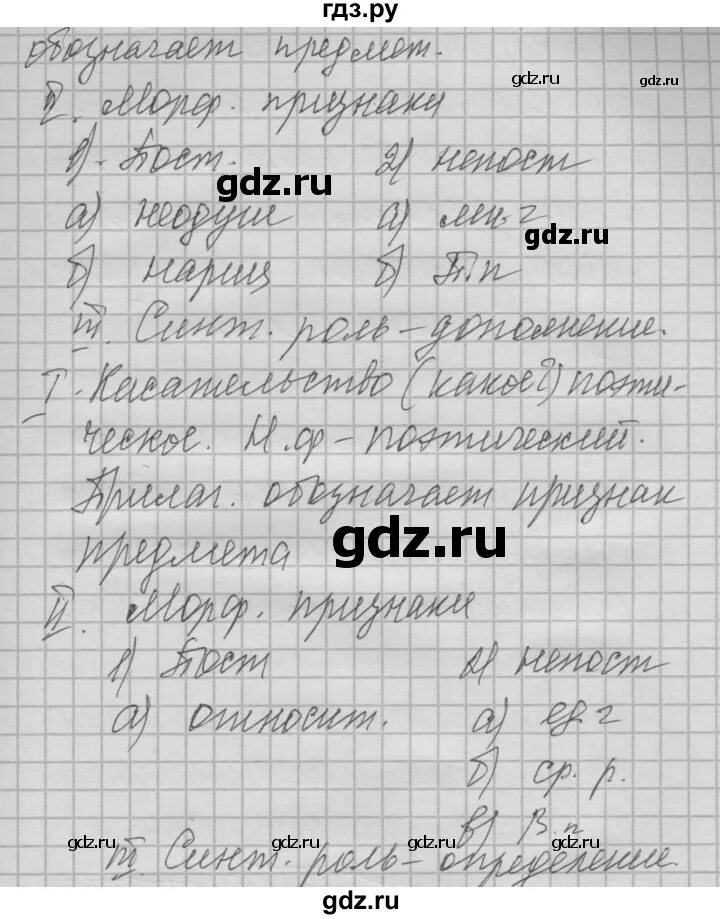 гдз.ру
обозначает предмет.
gdz.ru gdz.ru
II. Морф. признаки
1). Пост. 2) непост
gdz.ru
а) неодуш а) мн. г
gdz.ru
б) нариц б) Т.п
III. Синт. роль – дополнение.
I. Касательство (какое?) поэти-
ческое. Н.ф – поэтический.
Прилаг. обозначает признак
gdz.ru
предмета
II. Морф. признаки
1) Пост 2) непост
а) относит. а) ед. г
б) ср. р.
в) В.п
gdz.ru gdz.ru gdz.ru
III. Синт. роль – определение.
gdz.ru